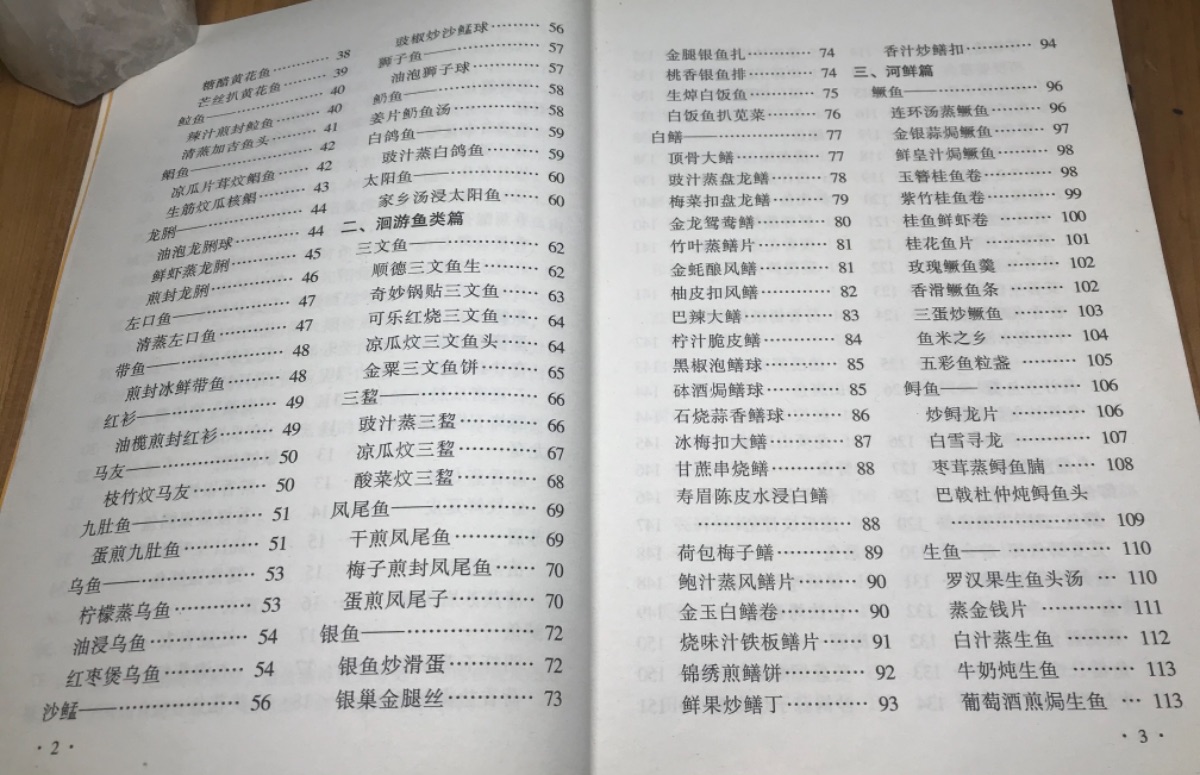 糖醋黄花鱼……… 38
芒丝扒黄花鱼……… 39
鲸鱼——……… 40
辣汁煎封鲸鱼……… 40
清蒸加吉鱼头……… 41
鲳鱼——……… 42
凉瓜片茸炆鲳鱼……… 42
生筋炆瓜核鲳……… 43
龙脷——……… 44
油泡龙脷球……… 44
鲜虾蒸龙脷……… 45
煎封龙脷……… 46
左口鱼——……… 47
清蒸左口鱼……… 47
带鱼——……… 48
煎封冰鲜带鱼……… 48
红衫——……… 49
油榄煎封红衫……… 49
马友——……… 50
枝竹炆马友……… 50
九肚鱼——……… 51
蛋煎九肚鱼……… 51
乌鱼——……… 53
柠檬蒸乌鱼……… 53
油浸乌鱼……… 54
红枣煲乌鱼……… 54
沙鯭——……… 56
豉椒炒沙鯭球……… 56
狮子鱼——……… 57
油泡狮子球……… 57
鱼——……… 58
姜片鱼汤……… 58
白鸽鱼——……… 59
豉汁蒸白鸽鱼……… 59
太阳鱼——……… 60
家乡汤浸太阳鱼……… 60
二、洄游鱼类篇
三文鱼——……… 62
顺德三文鱼生……… 62
奇妙锅贴三文鱼……… 63
可乐红烧三文鱼……… 64
凉瓜炆三文鱼头……… 64
金粟三文鱼饼……… 65
三鯬——……… 66
豉汁蒸三鯬……… 66
凉瓜炆三鯬……… 67
酸菜炆三鯬……… 68
凤尾鱼——……… 69
干煎凤尾鱼……… 69
梅子煎封凤尾鱼……… 70
蛋煎凤尾子……… 70
银鱼——……… 72
银鱼炒滑蛋……… 72
银巢金腿丝……… 73
· 2 ·
金腿银鱼扎……… 74
桃香银鱼排……… 74
生焯白饭鱼……… 75
白饭鱼扒苋菜……… 76
白鳝——……… 77
顶骨大鳝……… 77
豉汁蒸盘龙鳝……… 78
梅菜扣盘龙鳝……… 79
金龙鸳鸯鳝……… 80
竹叶蒸鳝片……… 81
金蚝酿风鳝……… 81
柚皮扣风鳝……… 82
巴辣大鳝……… 83
柠汁脆皮鳝……… 84
黑椒泡鳝球……… 85
砵酒焗鳝球……… 85
石烧蒜香鳝球……… 86
冰梅扣大鳝……… 87
甘蔗串烧鳝……… 88
寿眉陈皮水浸白鳝
……… 88
荷包梅子鳝……… 89
鲍汁蒸风鳝片……… 90
金玉白鳝卷……… 90
烧味汁铁板鳝片……… 91
锦绣煎鳝饼……… 92
鲜果炒鳝丁……… 93
香汁炒鳝扣……… 94
三、河鲜篇
鳜鱼——……… 96
连环汤蒸鳜鱼……… 96
金银蒜焗鳜鱼……… 97
鲜皇汁焗鳜鱼……… 98
玉簪桂鱼卷……… 98
紫竹桂鱼卷……… 99
桂鱼鲜虾卷……… 100
桂花鱼片……… 101
玫瑰鳜鱼羹……… 102
香滑鳜鱼条……… 102
三蛋炒鳜鱼……… 103
鱼米之乡……… 104
五彩鱼粒盏……… 105
鲟鱼——……… 106
炒鲟龙片……… 106
白雪寻龙……… 107
枣茸蒸鲟鱼腩……… 108
巴戟杜仲炖鲟鱼头
……… 109
生鱼——……… 110
罗汉果生鱼头汤… 110
蒸金钱片……… 111
白汁蒸生鱼……… 112
牛奶炖生鱼……… 113
葡萄酒煎焗生鱼… 113
· 3 ·